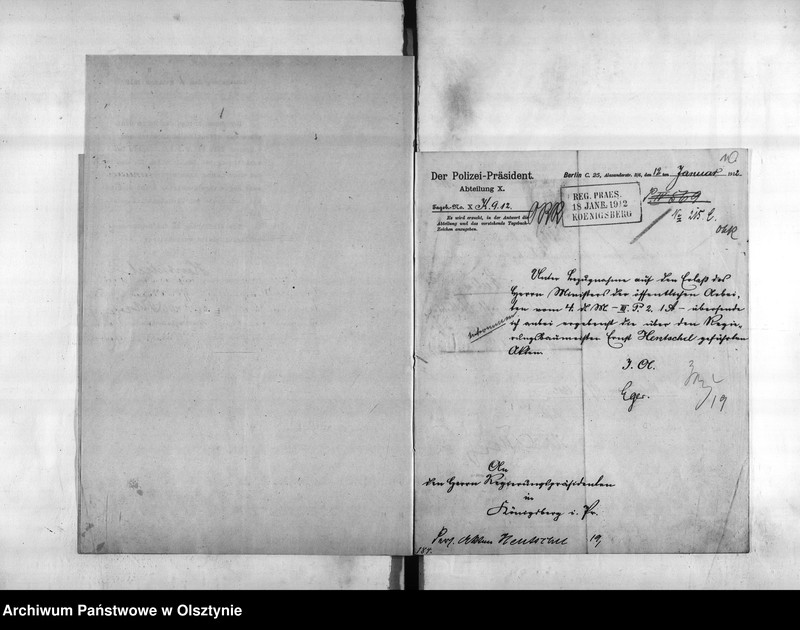 Der Polizei-Präsident.
Abteilung X.
Tageb.-No. X H. 9. 12.
Es wird ersucht, in der Antwort die
Abteilung und das vorstehende Tagebuch-
Zeichen anzugeben.
Berlin C. 25, Alexanderstr. den 12ten Januar 1912.
REG. PRAES.
18 JANR. 1912
KOENIGSBERG
Unter Bezugnahme auf den Erlaß des
Herrn Ministers der öffentlichen Arbei-
ten vom 4. d. M. – III. P. 2. 1 A – übersende
ich anbei ergebenst die über den Regie-
rungsbaumeister Ernst Hentschel geführten
Akten.
Eger.
19
An
den Herrn Regierungspräsidenten
in
Königsberg i. Pr.
Pers. Akten Hentschel
184.
Archiwum Państwowe w Olsztynie